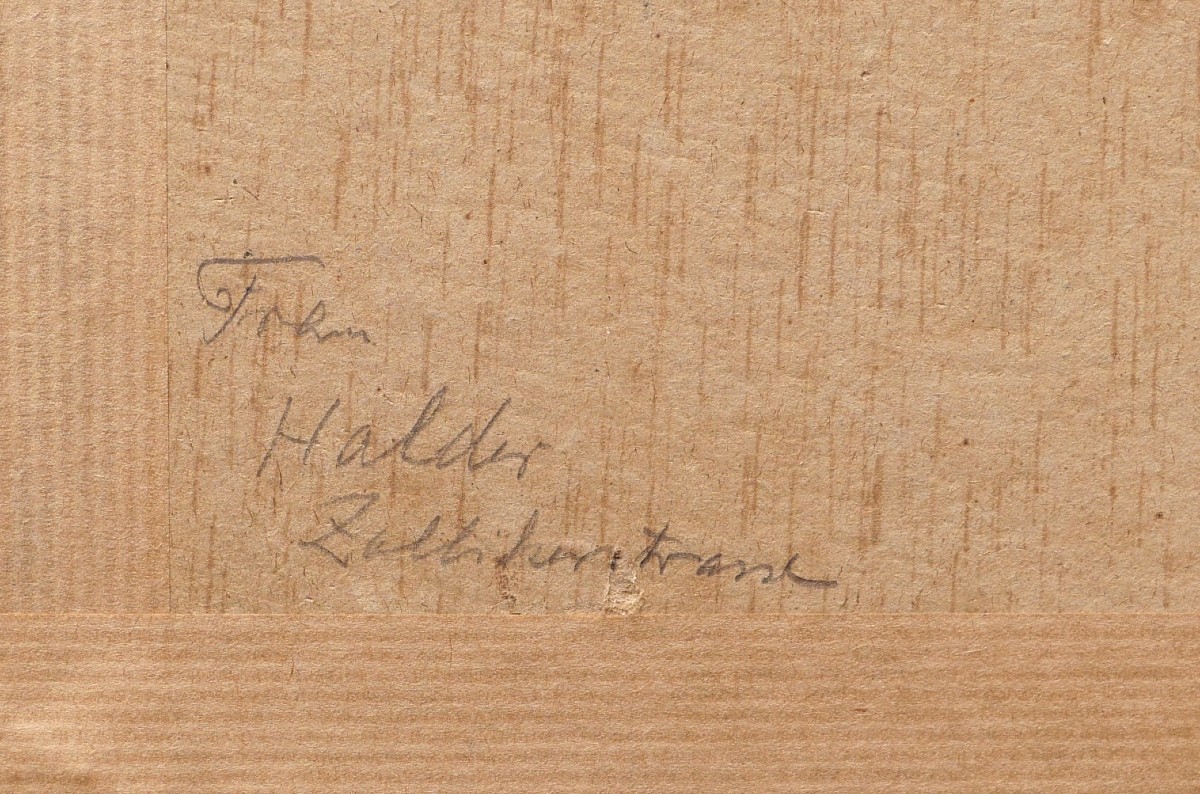 Halder
Zollikerstrasse